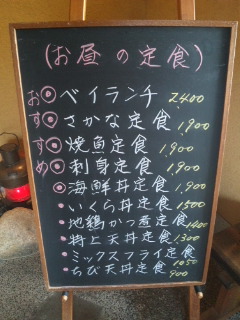 (お昼の定食)
おすすめ
◎ベイランチ 2400
◎さかな定食 1,900
◎焼魚定食 1,900
◎刺身定食 1,900
◎海鮮丼定食 1,900
・いくら丼定食 1,500
・地鶏かつ煮定食 1400
・特上天丼定食 1300
・ミックスフライ定食 1050
・ちび天丼定食 900